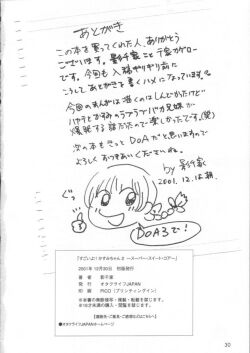 あとがき
この本を買ってくれた人、ありがとう
ございます。影千家こと千家カゲロー
です。今回も入稿ギリギリ前に
こうしてあとがきを書くハメになっています。
今回のまんがは描くのはしんどかったけど
ハヤテとかすみのラブラブバカ兄妹が
爆発する話だったので楽しかったです。(笑)
次の本もきっとDOAだと思いますので
よろしくおつきあいくださいね。
by 影千家
2001. 12. 18. 朝
DOA3で!
「すごいよ!かすみちゃん2 ～スーパー・スイート・コアー」
2001年12月30日 初版発行
著者 影千家
発行 オタクライフJAPAN
印刷 PICO(プリンティングイン)
※本書の無断複写・複製・転載を禁じます。
※18才未満の購入・閲覧を禁じます。
●オタクライフJAPANホームページ
30